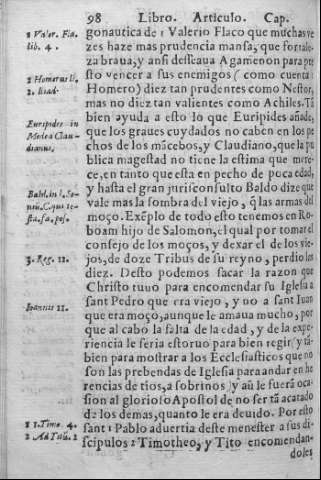 98 Libro. Articulo. Cap.
gonautica de 1 Valerio Flaco que muchas ve
zes haze mas prudencia mansa, que fortale
za braua, y ansi desseaua Agamenon para pre
sto vencer a sus enemigos (como cuenta 2
Homero) diez tan prudentes como Nestor,
mas no diez tan valientes como Achiles. Tã
bien ayuda a esto lo que Euripides añade,
que los graues cuydados no caben en los pe
chos de los mãcebos, y Claudiano, que la pu
blica magestad no tiene la estima que mere
ce, en tanto que esta en pecho de poca edad,
y hasta el gran jurisconsulto Baldo dize que
vale mas la sombra del viejo, q̃ las armas del
moço. Exẽplo de todo esto tenemos en Ro-
boam hijo de Salomon, el qual por tomar el
consejo de los moços, y dexar el de los vie-
jos, de doze Tribus de su reyno, perdio los
diez. Desto podemos sacar la razon que
Christo tuuo para encomendar su Iglesia a
sant Pedro que era viejo, y no a sant Iuan
que era moço, aunque le amaua mucho, por
que al cabo la falta de la edad, y de la expe-
riencia le seria estoruo para bien regir, y tã-
bien para mostrar a los Ecclesiasticos que no
son las prebendas de Iglesia para andar en he
rencias de tios, a sobrinos, y aũ le fuera oca-
sion al glorioso Apostol de no ser tã acatado
de los demas, quanto le era deuido. Por esto
sant 1 Pablo aduertia deste menester a sus di-
scipulos 2 Timotheo, y Tito encomendan-
doles
1 Valer. Fla.
lib. 4.
2 Homerus li.
2. Iliad.
Euripides in
Medea Clau-
dianus.
3. Reg. 12.
Ioannis 21.
1 1. Timo. 4.
2 Ad Titũ. 2.